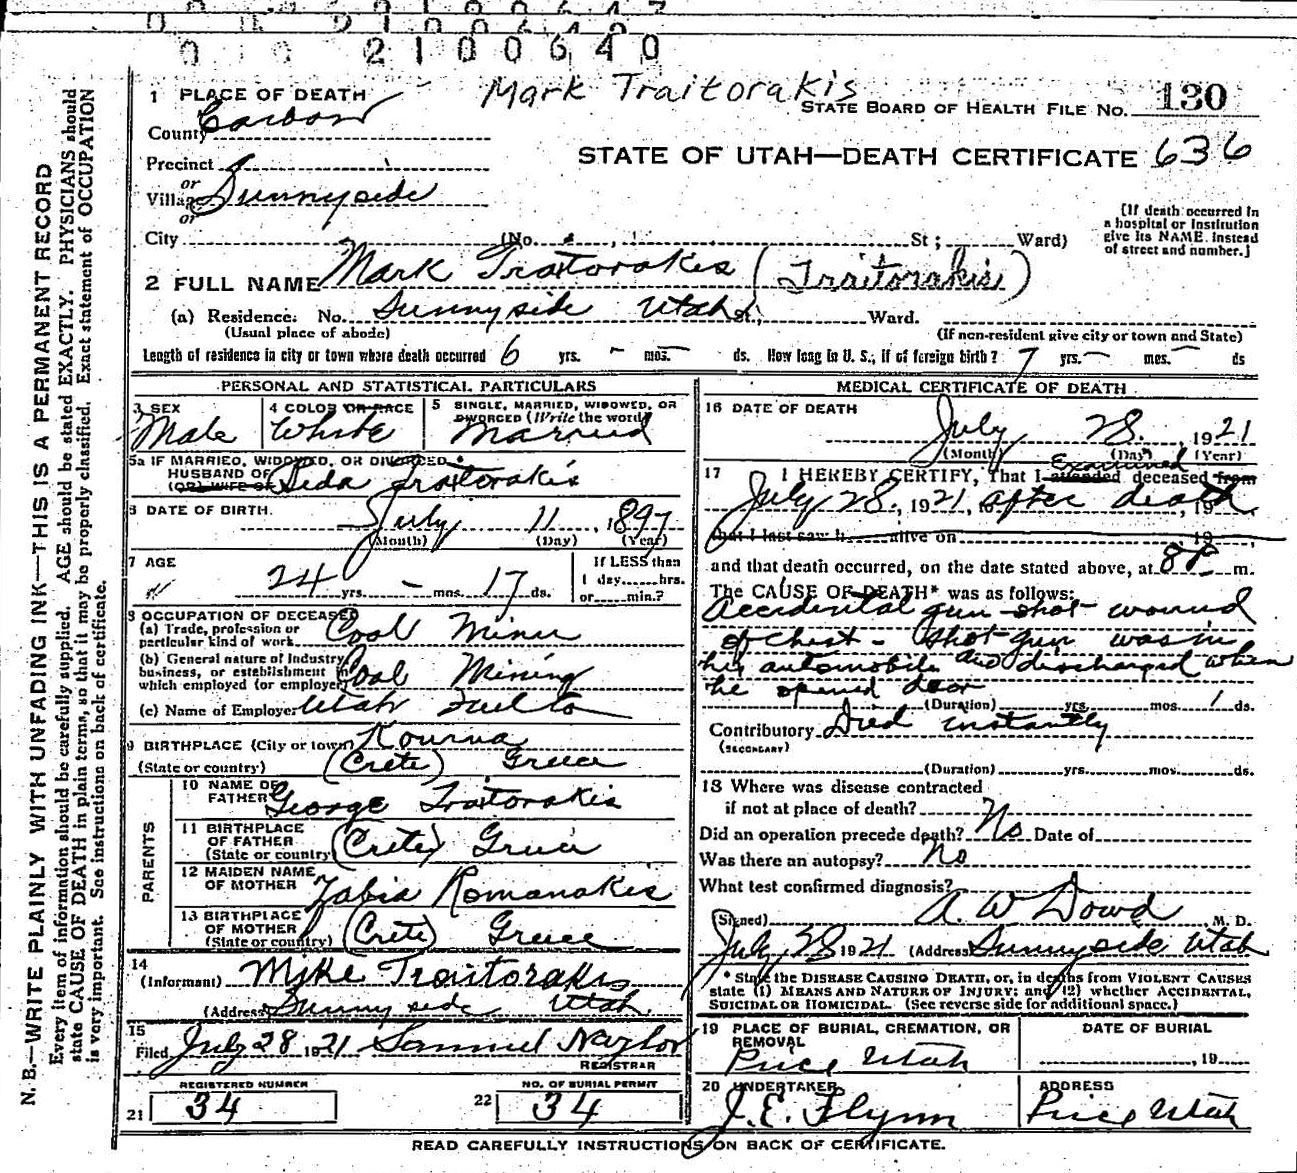 0 0 2 1 0 0 6 4 0
Mark Traitorakis
1 PLACE OF DEATH
STATE BOARD OF HEALTH FILE NO. 130
County Carbon
STATE OF UTAH—DEATH CERTIFICATE 636
Precinct
or
Village Sunnyside
or
City (No. St; Ward)
[If death occurred in
a hospital or institution
give its NAME instead
of street and number.]
2 FULL NAME Mark Traitorakis (Traitorakis)
(a) Residence. No. Sunnyside Utah St., Ward.
(Usual place of abode) (If non-resident give city or town and State)
Length of residence in city or town where death occurred 6 yrs. - mos. - ds. How long in U. S., if of foreign birth? 7 yrs. - mos. - ds
PERSONAL AND STATISTICAL PARTICULARS
3 SEX Male
4 COLOR OR RACE White
5 SINGLE, MARRIED, WIDOWED, OR
DIVORCED (Write the word)
Married
5a IF MARRIED, WIDOWED, OR DIVORCED
HUSBAND OF
(OR) WIFE OF Traitorakis
6 DATE OF BIRTH July 11, 1897
(Month) (Day) (Year)
7 AGE
24 yrs. - mos. 17 ds.
If LESS than
1 day......hrs.
or......min.?
8 OCCUPATION OF DECEASED
(a) Trade, profession or
particular kind of work Coal Miner
(b) General nature of Industry,
business, or establishment in
which employed (or employer) Coal Mining
(c) Name of Employer Utah Fuel Co
9 BIRTHPLACE (City or town) Kourna
(State or country) (Crete) Greece
PARENTS
10 NAME OF
FATHER George Traitorakis
11 BIRTHPLACE
OF FATHER
(State or country) (Crete) Greece
12 MAIDEN NAME
OF MOTHER Zabia Romanakis
13 BIRTHPLACE
OF MOTHER
(State or country) (Crete) Greece
14
(Informant) Mike Traitorakis
(Address) Sunnyside Utah
15
Filed July 28 1921 Samuel Naylor
REGISTRAR
REGISTERED NUMBER
21 34
NO. OF BURIAL PERMIT
22 34
MEDICAL CERTIFICATE OF DEATH
16 DATE OF DEATH
July 28, 1921
(Month) (Day) (Year)
17 I HEREBY CERTIFY, That I attended examined deceased from
July 28, 1921, to after death, 19
that I last saw h alive on 19
and that death occurred, on the date stated above, at 8 P m.
The CAUSE OF DEATH* was as follows:
Accidental gun shot wound
of chest - shot gun was in
his automobile and discharged when
he opened door
(Duration) yrs. mos. 1 ds.
Contributory Died instantly
(SECONDARY)
(Duration) yrs. mos. ds.
18 Where was disease contracted
if not at place of death?
Did an operation precede death? No Date of
Was there an autopsy? No
What test confirmed diagnosis?
(Signed) A. W Dowd M. D.
July 28 1921 (Address) Sunnyside Utah
* State the DISEASE CAUSING DEATH, or, in deaths from VIOLENT CAUSES
state (1) MEANS AND NATURE OF INJURY; and (2) whether ACCIDENTAL,
SUICIDAL OR HOMICIDAL. (See reverse side for additional space.)
19 PLACE OF BURIAL, CREMATION, OR
REMOVAL
Price Utah
DATE OF BURIAL
, 19
20 UNDERTAKER
J. E. Flynn
ADDRESS
Price Utah
READ CAREFULLY INSTRUCTIONS ON BACK OF CERTIFICATE.
N. B.—WRITE PLAINLY WITH UNFADING INK—THIS IS A PERMANENT RECORD
Every item of information should be carefully supplied. AGE should be stated EXACTLY. PHYSICIANS should
state CAUSE OF DEATH in plain terms, so that it may be properly classified. Exact statement of OCCUPATION
is very important. See instructions on back of certificate.